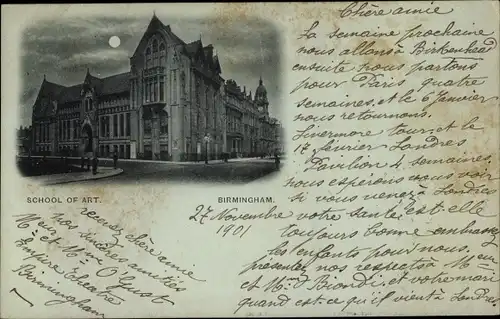 Chère amie
La semaine prochaine
nous allons à Birkenhead
ensuite nous partons
pour Paris quatre
semaines, et le 6 Janvier
nous retournons.
tour et le
17 février Londres
Pavilion 4 semaines,
nous espérons vous voir
si vous venez à Londres
votre santé est-elle
toujours bonne embrassez
les enfants pour nous.
présentez nos respects à Mr
et Mme Biondi, et votre mari
quand est-ce qu'il vient à Londres
SCHOOL OF ART.
BIRMINGHAM.
27 Novembre
1901
recevez chère amie
nos sincères amitiés
Mr et Mme O'Gust
Empire Theatre
Birmingham